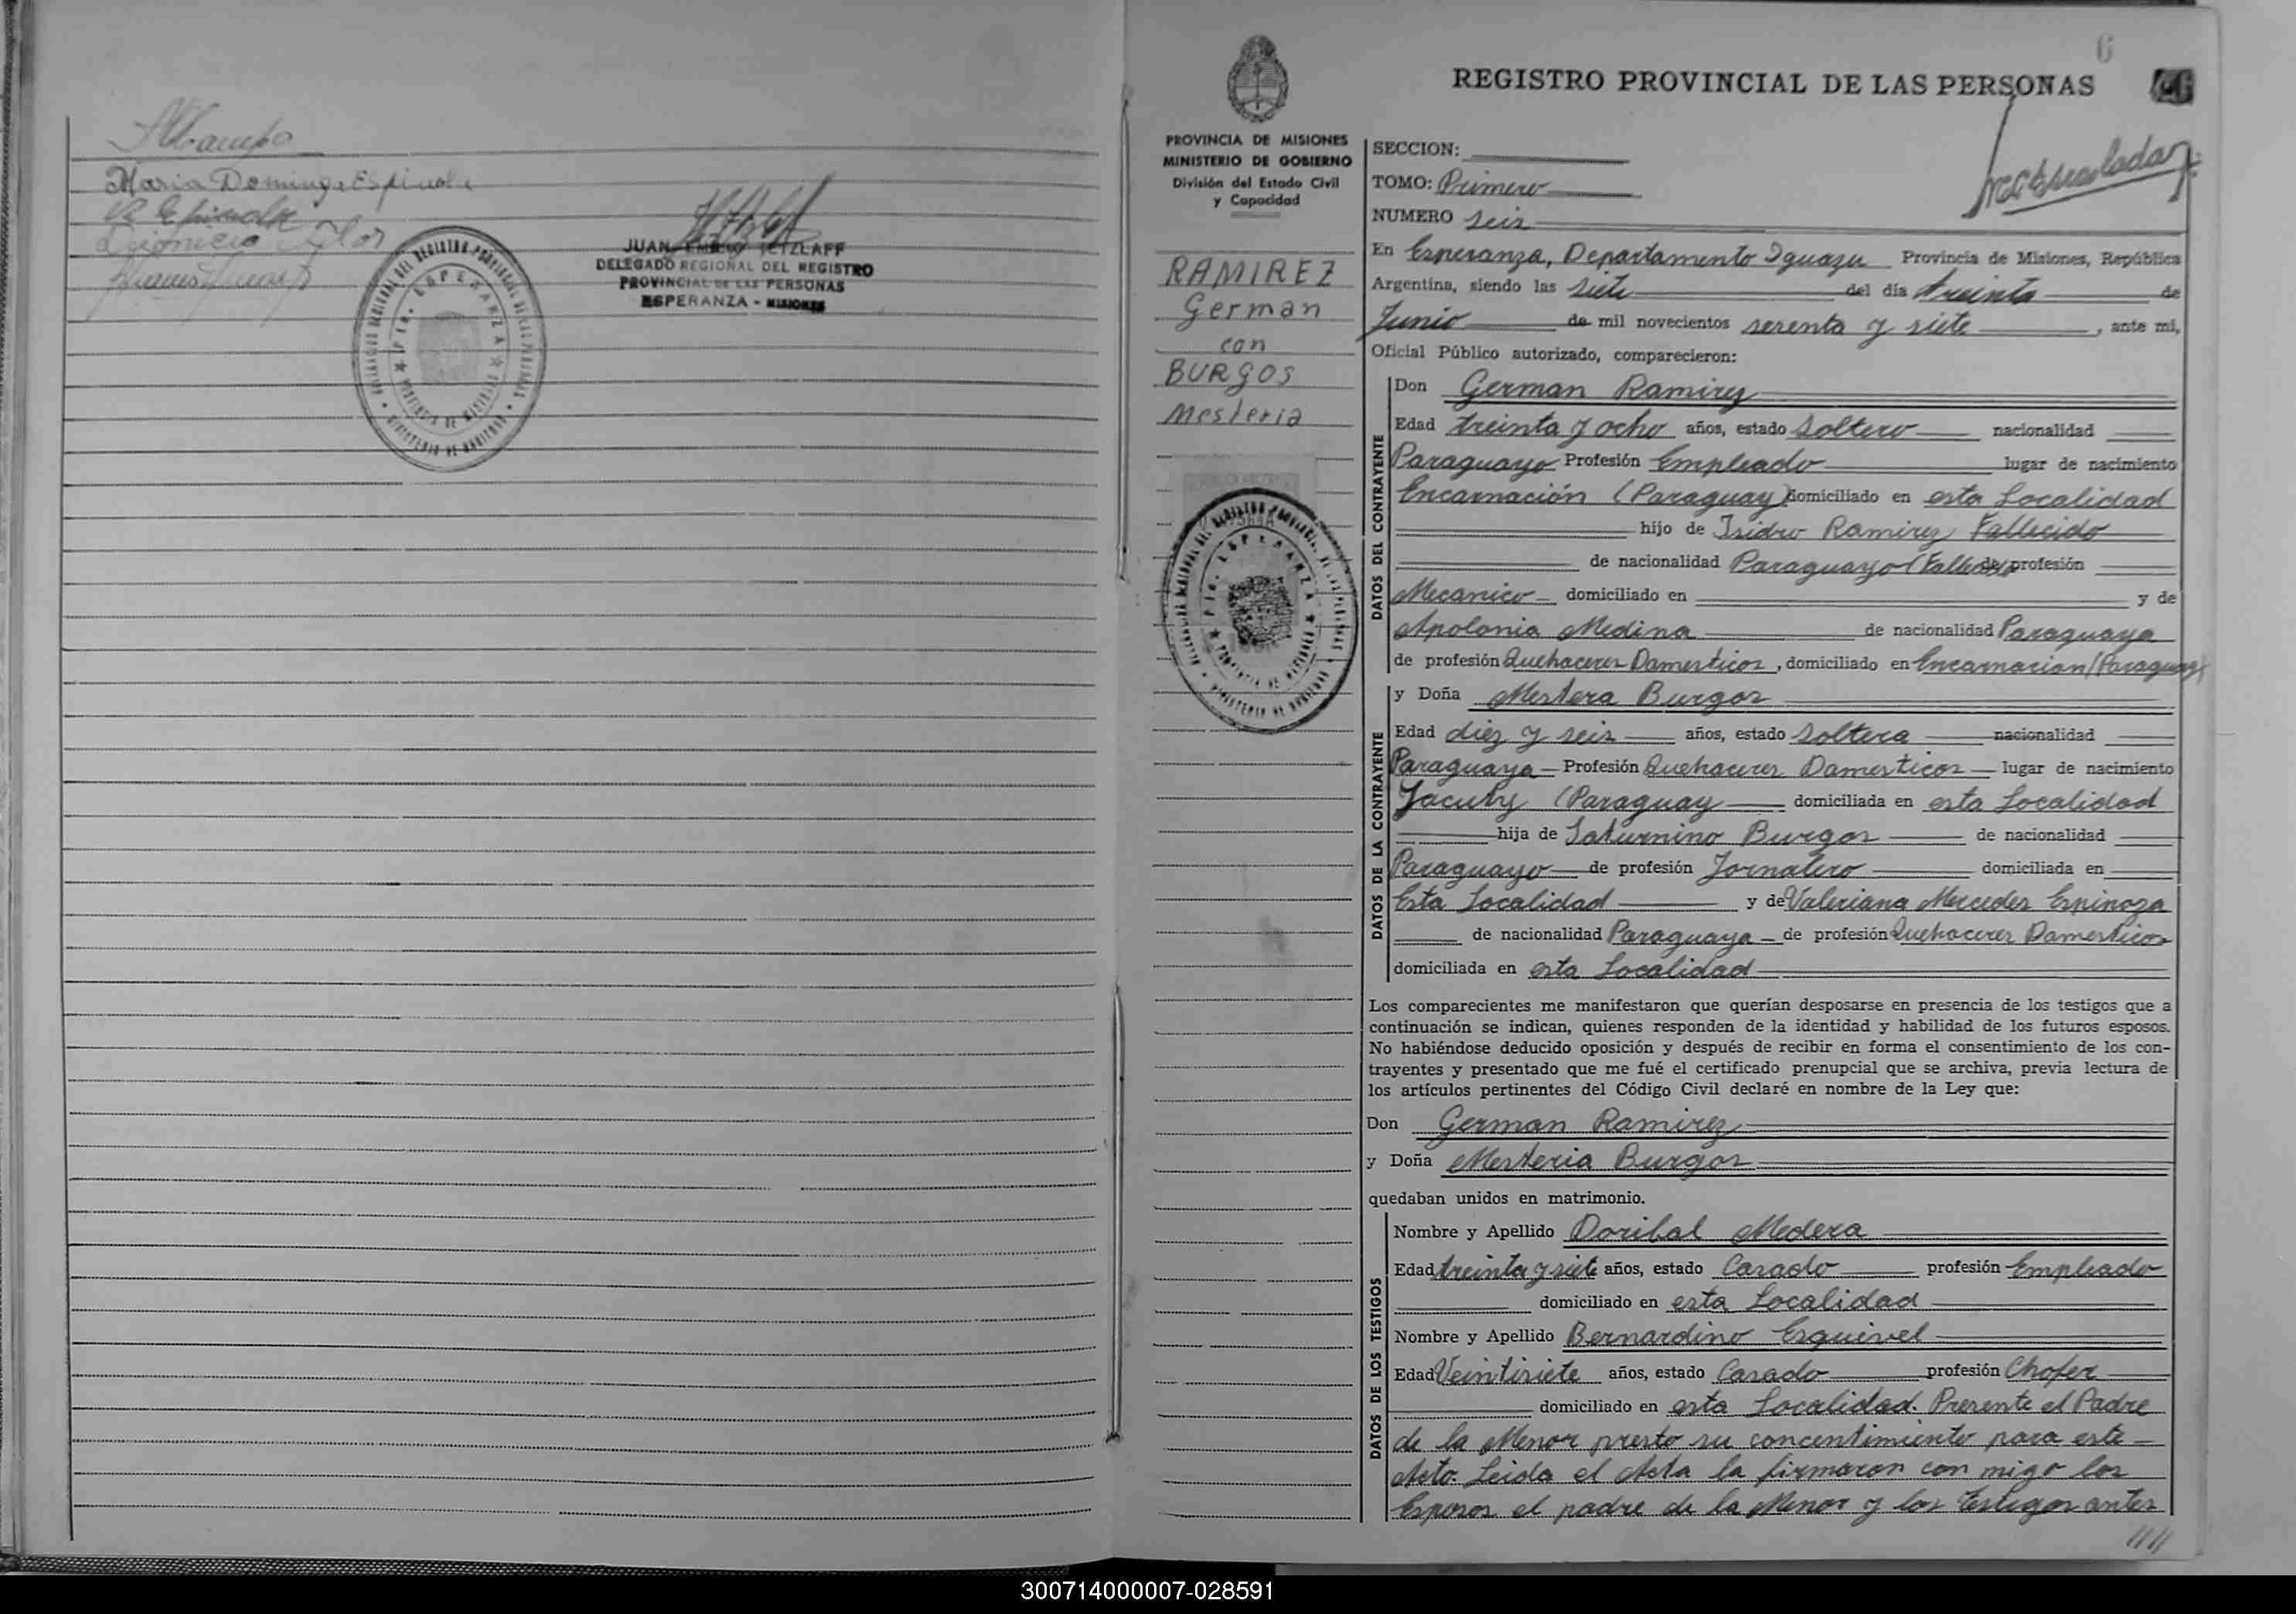 Maria Dominga Espinola
Dionicio Flor
JUAN EMILIO TETZLAFF
DELEGADO REGIONAL DEL REGISTRO
PROVINCIAL DE LAS PERSONAS
ESPERANZA - MISIONES
6
REGISTRO PROVINCIAL DE LAS PERSONAS
PROVINCIA DE MISIONES
MINISTERIO DE GOBIERNO
División del Estado Civil
y Capacidad
RAMIREZ
German
con
BURGOS
Mesteria
SECCION:
TOMO: Primero
NUMERO seis
En Esperanza, Departamento Iguazu Provincia de Misiones, República
Argentina, siendo las siete del día treinta de
Junio de mil novecientos serenta y siete, ante mi,
Oficial Público autorizado, comparecieron:
DATOS DEL CONTRAYENTE
Don German Ramirez
Edad treinta y ocho años, estado Soltero nacionalidad
Paraguayo Profesión Empleado lugar de nacimiento
Encarnación (Paraguay) domiciliado en esta Localidad
hijo de Isidro Ramirez Fallecido
de nacionalidad Paraguayo (Fallecido de profesión
Mecanico domiciliado en y de
Apolonia Medina de nacionalidad Paraguaya
de profesión Quehaceres Damesticos, domiciliado en Encarnacion (Paraguay)
DATOS DE LA CONTRAYENTE
y Doña Mestera Burgos
Edad diez y seis años, estado Soltera nacionalidad
Paraguaya Profesión Quehaceres Damesticos lugar de nacimiento
(Paraguay domiciliada en esta Localidad
hija de Saturnino Burgos de nacionalidad
Paraguayo de profesión Jornalero domiciliada en
Esta Localidad y de Valeriana Mercedes Espinoza
de nacionalidad Paraguaya de profesión Quehaceres Damesticos
domiciliada en esta Localidad
Los comparecientes me manifestaron que querían desposarse en presencia de los testigos que a
continuación se indican, quienes responden de la identidad y habilidad de los futuros esposos.
No habiéndose deducido oposición y después de recibir en forma el consentimiento de los con-
trayentes y presentado que me fué el certificado prenupcial que se archiva, previa lectura de
los artículos pertinentes del Código Civil declaré en nombre de la Ley que:
Don German Ramirez
y Doña Mesteria Burgos
quedaban unidos en matrimonio.
DATOS DE LOS TESTIGOS
Nombre y Apellido Doribal Medera
Edad treinta y siete años, estado Casado profesión Empleado
domiciliado en esta Localidad
Nombre y Apellido Bernardino Esquivel
Edad Veintisiete años, estado Casado profesión Chofer
domiciliado en esta Localidad. Presente el Padre
de la Menor presto su concentimiento para este
Acto. Leida el Acta la firmaron con migo los
Esposos el padre de la Menor y los Testigos antes
////
300714000007-028591